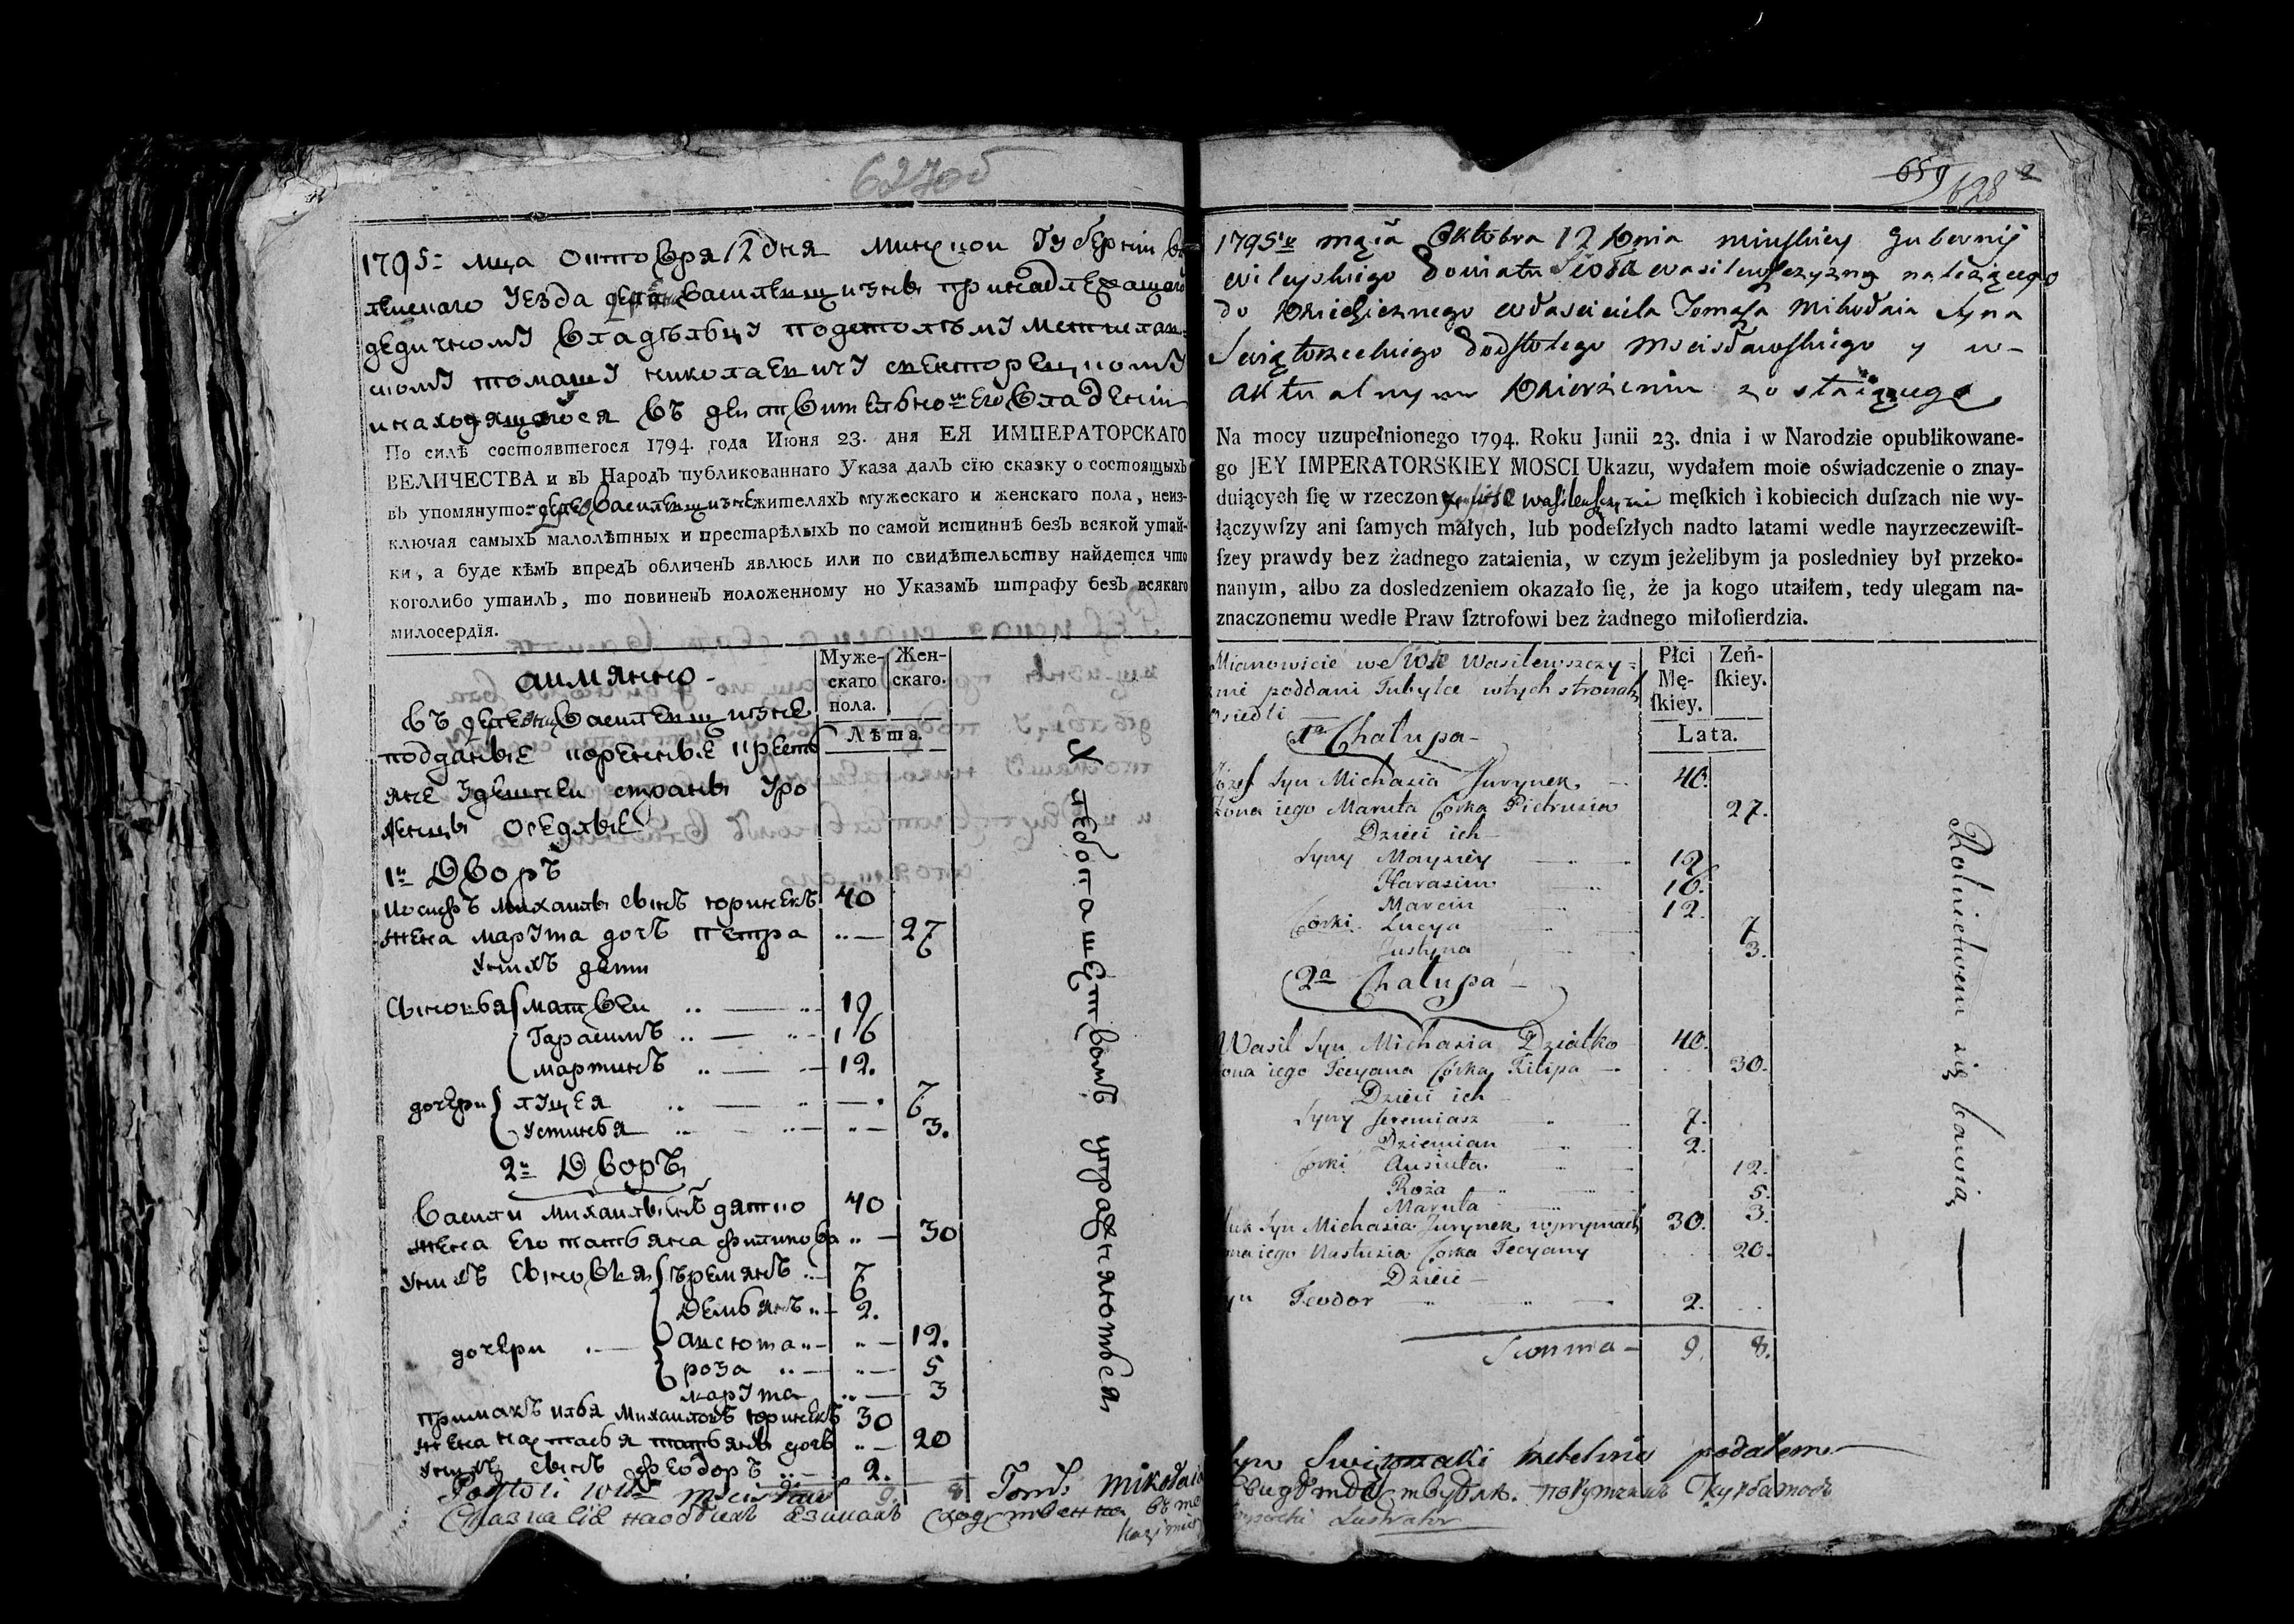 627об
1795- мца Октовря 12 дня Минской Губерніи Ви
лейскаго уезда дерев: Василевщизны принадлежащаго
дедичному владѣльцу подстолѣму мстислав
скому Томашу Николаевичу
и находящагося въ действительном Его владеніи
По силѣ состоявшегося 1794. года Июня 23. дня ЕЯ ИМПЕРАТОРСКАГО
ВЕЛИЧЕСТВА и въ Народъ публикованнаго Указа далъ сїю сказку о состоящыхъ
въ упомянуто- дерев Василевщизне жителяхъ мужескаго и женскаго пола, неиз-
ключая самыхъ малолѣтных и престарѣлыхъ по самой истиннѣ безъ всякой утай-
ки, а буде кѣмъ впредъ обличенъ явлюсь или по свидѣтельству найдется что
коголибо утаилъ, то повиненъ положенному но Указамъ штрафу безъ всякаго
милосердїя.
аимянно - Муже- Жен-
скаго скаго.
пола.
Лѣта.
въ деревни Василевщизне
подданые коренные крестъ
яне здешнеи страны уро
женцы оседлые
1й Дворъ
Иосифъ Михаилы сынъ юринекъ 40
жена марута дочъ петра ..— 27
у них дети
сыновья матвеи .. — .. 19
Гарасимъ .. — .. 16
мартинъ .. — 12.
дочери луцея .. — .. — . 7
устинья .. — .. — 3.
2й Дворъ
Василi михаилы снъ дятко 40
жена Его татьяна филипова .. — 30
у них сыновья ѣремянъ .. — 7
Демьянъ .. — 2.
дочери .. — анстота .. — .. — 12.
роза .. — .. — 5
марута .. — 3
примакъ илья михаиловъ юринекъ 30
жена настасья татьяны дочь .. — 20
у них сынъ феодоръ .. — 2.
9. 8.
Хлебопашетвомъ упражняются
Tom. Mikołaia
Сказка сiя на обѣихъ языкахъ сходственна
Kazimier
659 628 2
1795го mąia Oktobra 12 Dnia minskiey gubernij
wileyskiego Dowiatu Sioła wasilewszczyzny należącego
do Dziedzicznego właściciela Tomasza Mikołaia Syna
Swiątorzeckiego Podstolego Mscisławskiego y w-
aktualnym Dzierżeniu zostaiącego
Na mocy uzupełnionego 1794. Roku Junii 23. dnia i w Narodzie opublikowane-
go JEY IMPERATORSKIEY MOSCI Ukazu, wydałem moie oświadczenie o znay-
duiących ſię w rzeczon ym siole wasilewszczyznie męſkich i kobiecich duſzach nie wy-
łączywſzy ani ſamych małych, lub podeſzłych nadto latami wedle nayrzeczewiſt-
ſzey prawdy bez żadnego zataienia, w czym jeżelibym ja posledniey był przeko-
nanym, albo za dosledzeniem okazało ſię, że ja kogo utaiłem, tedy ulegam na-
znaczonemu wedle Praw ſztrofowi bez żadnego miłoſierdzia.
Mianowicie we Siole Wasilewszczy= Płci Zeń-
znie poddani Tubylce wtych stronach Mę- ſkiey.
osiedli ſkiey.
Lata.
1a Chałupa-
Józef Syn Michasia Jurynek — 40.
Zona iego Maruta Corka Pietrusia 27.
Dzieci ich —
Syny Maysiey 19.
Harasim 16.
Marcin 12.
Corki Lucya 7
Justyna 3.
2a Chałupa —
Wasil Syn Michasia Dziatko 40.
ona iego Tecyana Corka Filipa — 30.
Dzieci ich
Syny Jeremiasz 7.
Dziemian 2.
Corki Ansiuta 12.
Roża 5.
Maruta 3.
Syn Michasia Jurynek wprymach 30.
na iego Nastusia Corka Tecyany 20.
Dzieie —
yn Teodor — 2.
Summa - 9. 8.
Rolnictwem się bawią —
podałem
Lustrator